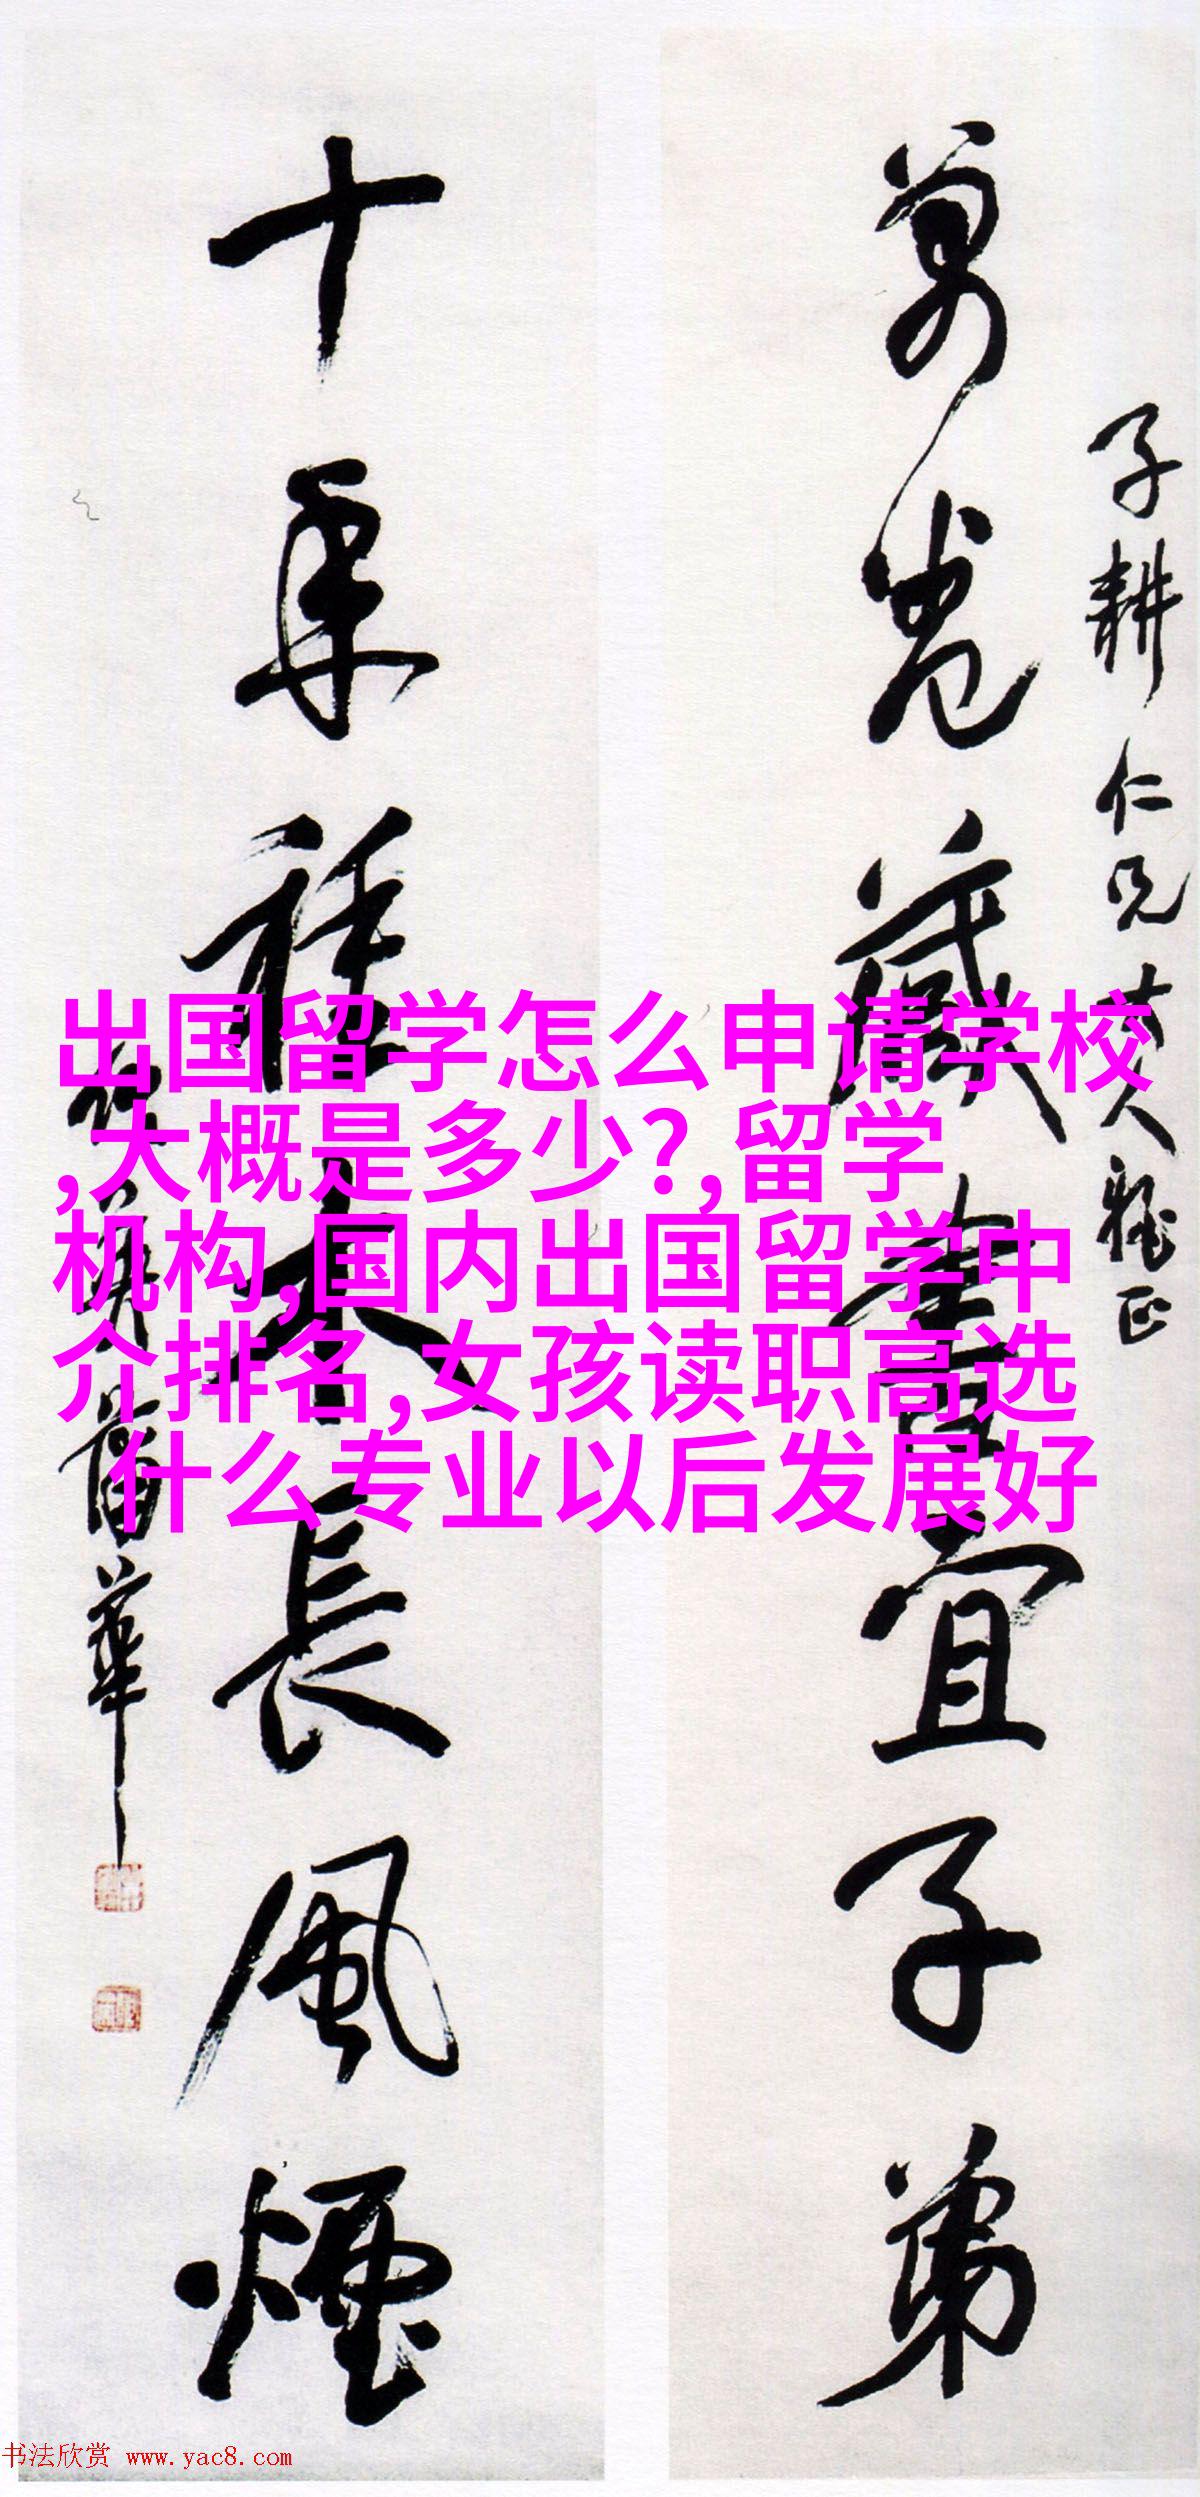 子耕仁兄大人雅正
萬卷藏書宜子弟
十年種木長風煙
作英蒲華
出国留学怎么申请学校
,大概是多少?,留学
机构,国内出国留学中
介排名,女孩读职高选
什么专业以后发展好
书法欣赏 www.yac8.com